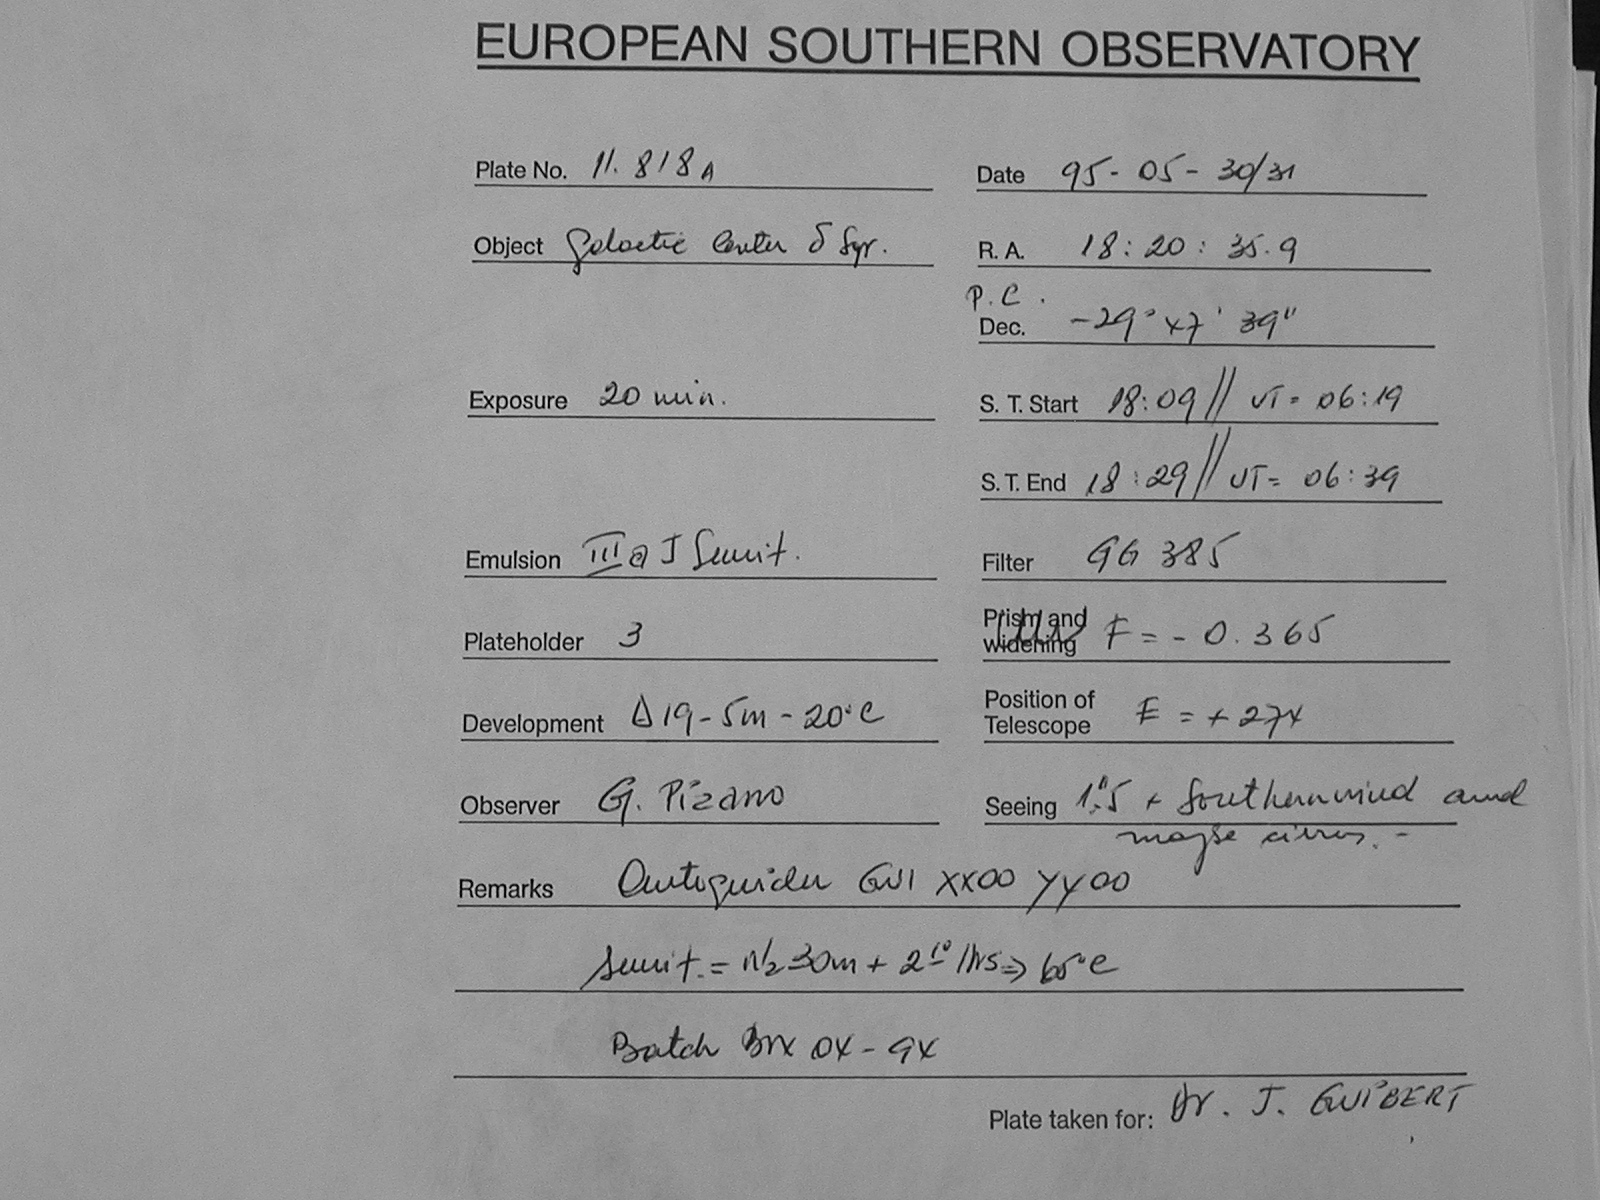 EUROPEAN SOUTHERN OBSERVATORY
Plate No. 11.818A
Date 95-05-30/31
Object Galactic Center δ Sgr.
R. A. 18:20:35.9
P.C.
Dec. -29° 47' 39"
Exposure 20 min.
S. T. Start 18:09 // UT= 06:19
S. T. End 18:29 // UT= 06:39
Emulsion III a J Sensit.
Filter GG 385
Plateholder 3
Prism and widening F = - 0.365
Development D19-5m-20°C
Position of Telescope E = +274
Observer G. Pizarro
Seeing 1".5 + Southern wind and
maybe cirrus.-
Remarks Autoguider GUI XX00 YY00
Sensit. = N2 30m + 2 hrs => 65°C
Batch 04-94
Plate taken for: Dr. J. GUIBERT